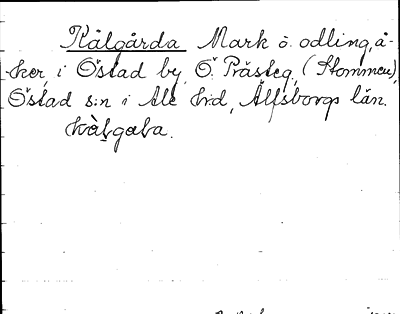 Kålgårda Mark ö. odling, å-
ker, i Östad by, Ö. Prästeg. (Stommen),
Östad s:n i Ale hd, Älfsborgs län.